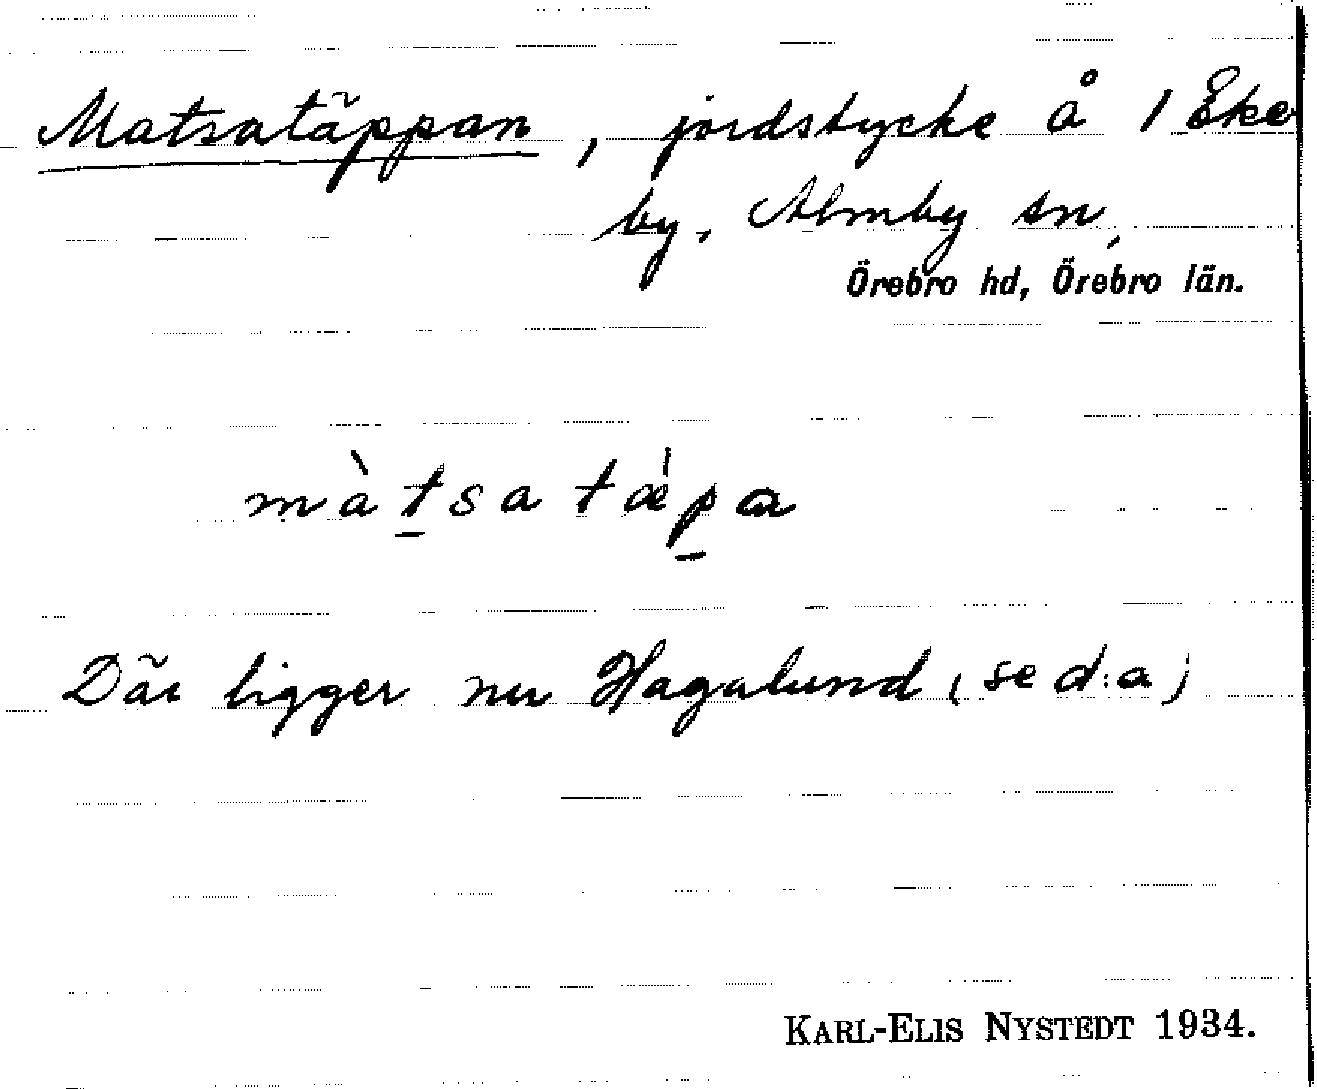 Matsatäppan, jordstycke å 1 Eke
by, Almby sn,
Örebro hd, Örebro län.
màt̲sa tǽp̲a
Där ligger nu Hagalund (se d:a)
KARL-ELIS NYSTEDT 1934.